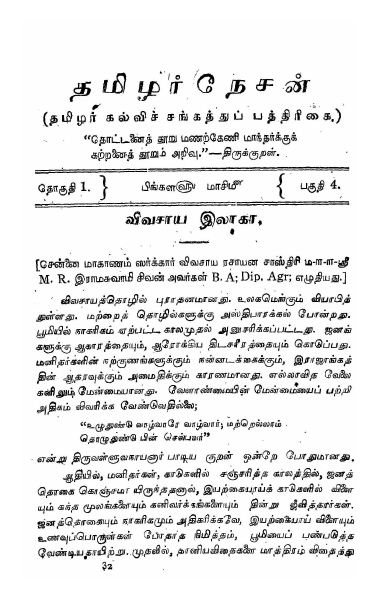 தமிழர் நேசன்
(தமிழர் கல்விச் சங்கத்துப் பத்திரிகை.)
"தொட்டனைத் தூறு மணற்கேணி மாந்தர்க்குக்
கற்றனைத் தூறும் அறிவு."—திருக்குறள்.
தொகுதி 1. } பிங்களஹு மாசிமீ { பகுதி 4.
விவசாய இலாகா.
[சென்னை மாகாணம் ஸர்க்கார் விவசாய ரசாயன சாஸ்திரி ம-ா-ள-ஸ்ரீ
M. R. இராமசுவாமி சிவன் அவர்கள் B. A; Dip. Agr; எழுதியது.]
விவசாயத்தொழில் புராதனமானது. உலகமெங்கும் வியாபித்
துள்ளது. மற்றைத் தொழில்களுக்கு அஸ்திபாரக்கல் போன்றது.
பூமியில் நாகரிகம் ஏற்பட்ட காலமுதல் அனுசரிக்கப்பட்டது. ஜனங்
களுக்கு ஆகாரத்தையும், ஆரோக்ய திடசரீரத்தையும் கொடுப்பது.
மனிதர்களின் நற்குணங்களுக்கும் நன்னடக்கைக்கும், இராஜாங்கத்
தின் ஆதரவுக்கும் அமைதிக்கும் காரணமானது. எல்லாவித வேலை
களிலும் மேன்மையானது. வேளாண்மையின் மேன்மையைப் பற்றி
அதிகம் விவரிக்க வேண்டுவதில்லை;
"உழுதுண்டு வாழ்வாரே வாழ்வார்; மற்றெல்லாம்
தொழுதுண்டு பின் செல்பவர்"
என்று திருவள்ளுவநாயனார் பாடிய குறள் ஒன்றே போதுமானது.
ஆதியில், மனிதர்கள், காடுகளில் சஞ்சரித்த காலத்தில், ஜனத்
தொகை கொஞ்சமா யிருந்ததனால், இயற்கையாய்க் காடுகளில் விளை
யும் கந்த மூலங்களையும் கனிவர்க்கங்களையும் தின்று ஜீவித்தார்கள்.
ஜனத்தொகையும் நாகரிகமும் அதிகரிக்கவே, இயற்கையாய் விளையும்
உணவுப்பொருள்கள் போதாத நிமித்தம், பூமியைப் பண்படுத்த
வேண்டியதாயிற்று. முதலில், தானியவிதைகளை மாத்திரம் விதைத்து
௩௨